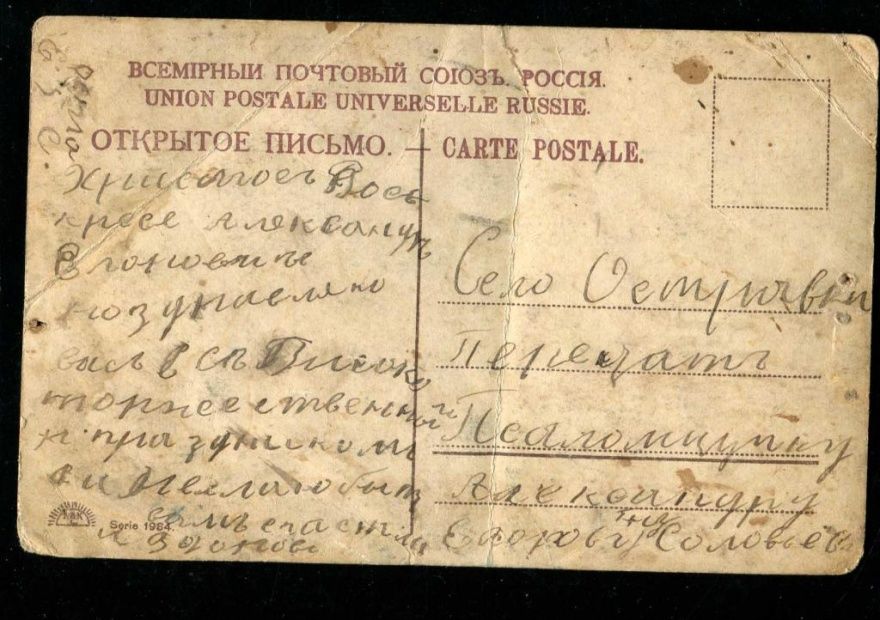 ВСЕМІРНЫЙ ПОЧТОВЫЙ СОЮЗЪ. РОССІЯ.
UNION POSTALE UNIVERSELLE RUSSIE.
ОТКРЫТОЕ ПИСЬМО. — CARTE POSTALE.
Христосъ Вось
кресе Александръ
поздравляю
васъ съ Високо
торжественны
праздником
и Желаю быт
вамъ счастли
Serie 1984.
Село Островки
Передать
Псаломщику
Александру
Егорову Соловьев